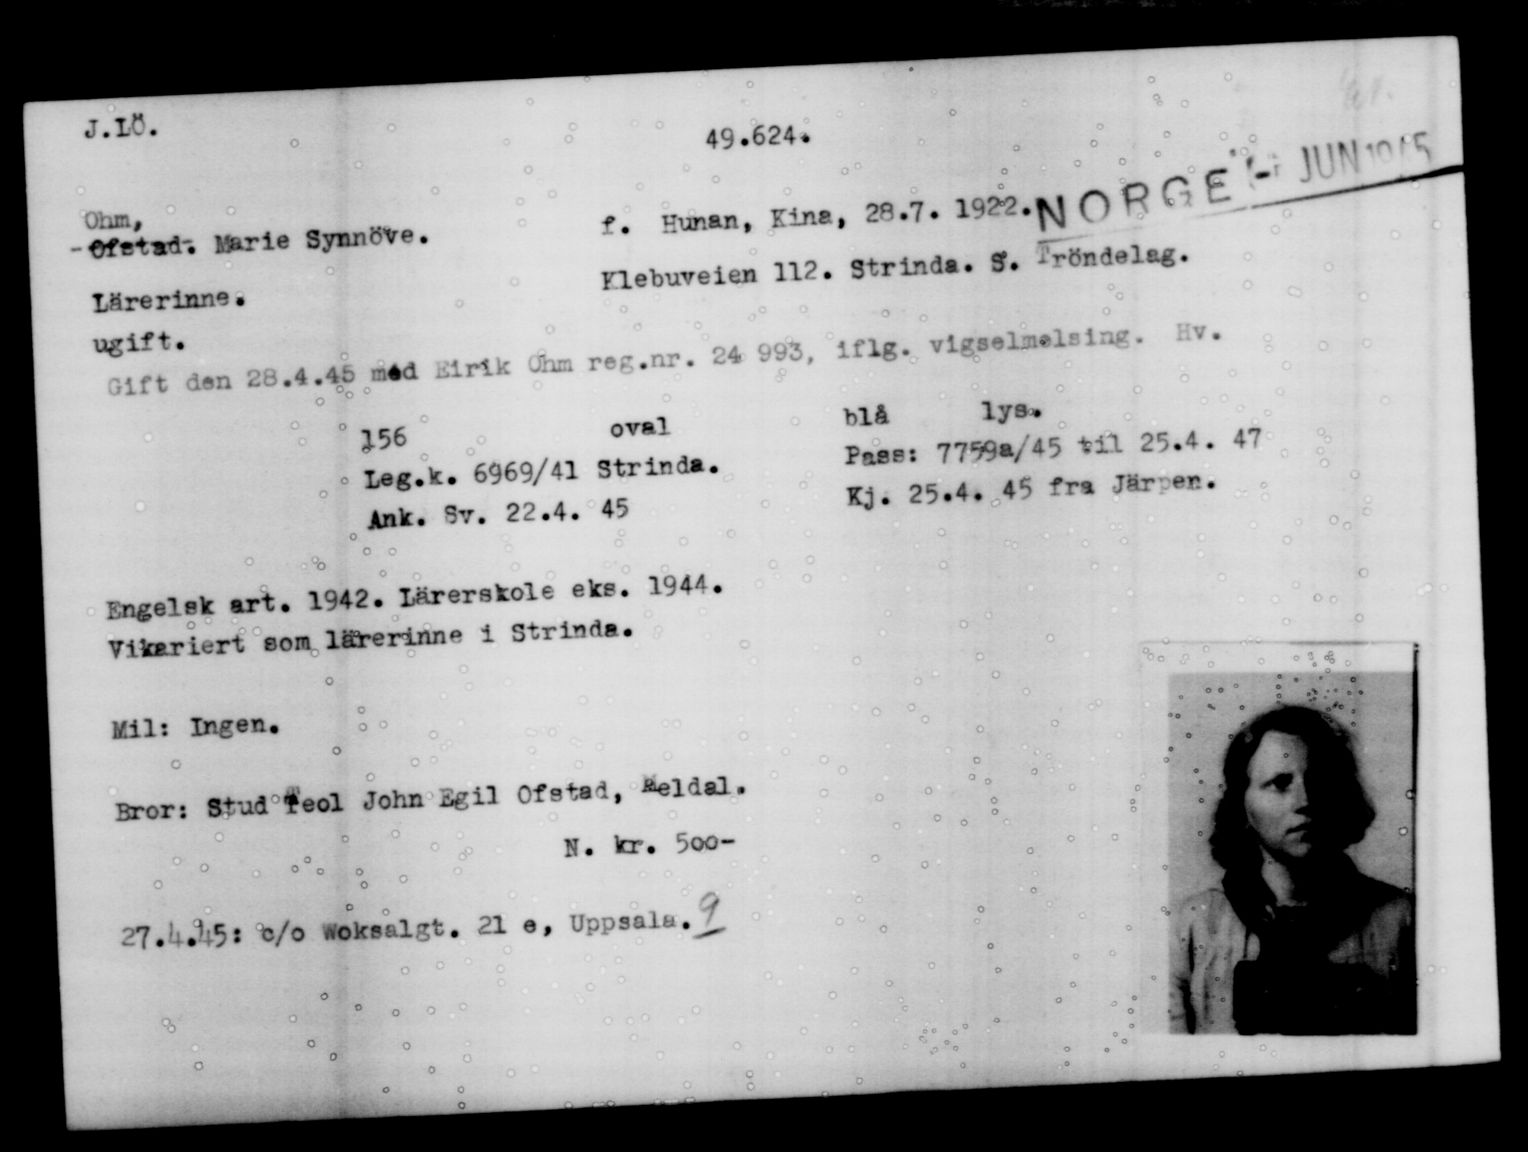 J.LÖ.
49.624.
NORGE - JUN 1945
Ohm,
-Ofstad. Marie Synnöve.
f. Hunan, Kina, 28.7. 1922.
Lärerinne.
Klebuveien 112. Strinda. S. Tröndelag.
ugift.
Gift den 28.4.45 med Eirik Ohm reg.nr. 24 993, iflg. vigselmelsing. Hv.
156 oval blå lys.
Leg.k. 6969/41 Strinda. Pass: 7759a/45 til 25.4. 47
Ank. Sv. 22.4. 45 Kj. 25.4. 45 fra Järpen.
Engelsk art. 1942. Lärerskole eks. 1944.
Vikariert som lärerinne i Strinda.
Mil: Ingen.
Bror: Stud Teol John Egil Ofstad, Meldal.
N. kr. 500-
27.4.45: c/o Woksalgt. 21 e, Uppsala. 9